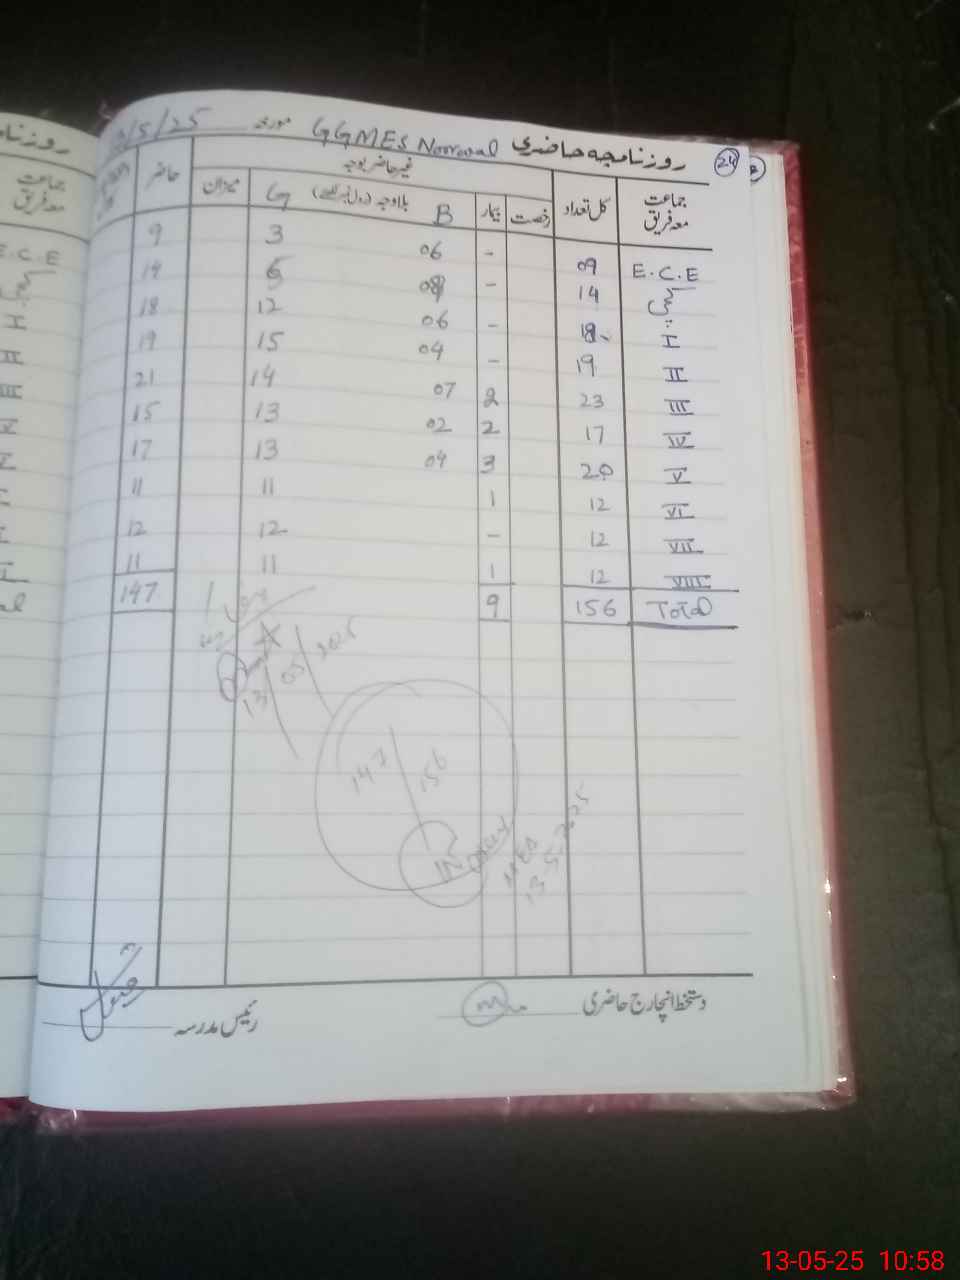 روزنامچہ حاضری GGMES Noorawal مورخہ 13/5/25
24
جماعت معہ فریق کل تعداد غیر حاضر بوجہ حاضر
رخصت بیمار B بلاوجہ G میزان
E.C.E 09 - 06 3 9
کچی 14 - 08 6 14
I 18 - 06 12 18
II 19 - 04 15 19
III 23 2 07 14 21
IV 17 2 02 13 15
V 20 3 04 13 17
VI 12 1 11 11
VII 12 - 12 12
VIII 12 1 11 11
Total 156 9 147
13/05/2025
147/156
MEA
13-5-2025
دستخط انچارج حاضری
رئیس مدرسہ
روزنامچہ
جماعت معہ فریق
E.C.E
کچی
I
II
III
V
13-05-25 10:58